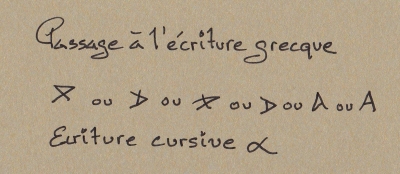 Passage à l'écriture grecque
ou ou ou ou A ou A
Ecriture cursive α